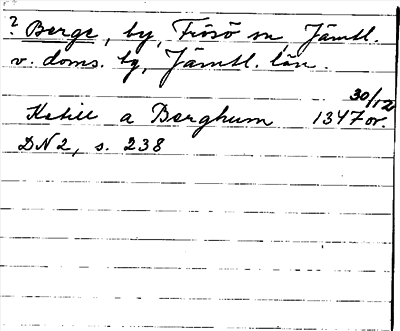 ? Berge, by, Frösö sn, Jämtl.
v. doms. tg, Jämtl. län.
30/12
Ketill a Berghum 1347 or.
DN 2, s. 238